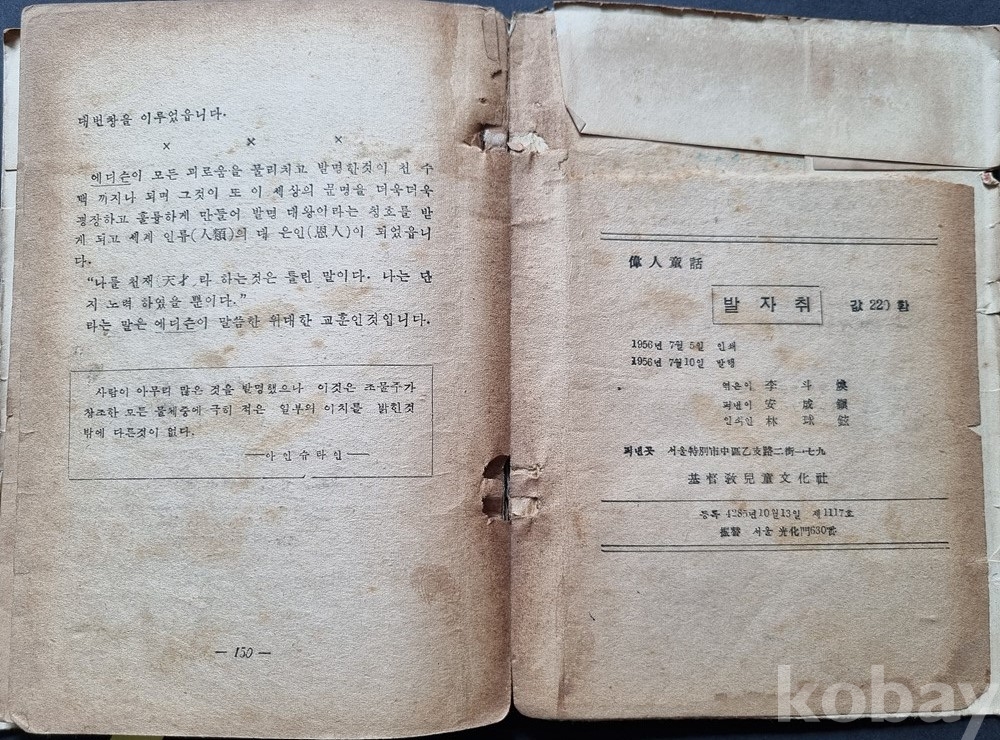 대번창을 이루었읍니다.
× × ×
에디슨이 모든 괴로움을 물리치고 발명한것이 천 수
백 까지나 되며 그것이 또 이 세상의 문명을 더욱더욱
굉장하고 훌륭하게 만들어 발명 대왕이라는 칭호를 받
게 되고 세계 인류(人類)의 대 은인(恩人)이 되었읍니
다.
“나를 천재(天才)라 하는것은 틀린 말이다. 나는 단
지 노력 하였을 뿐이다.”
라는 말은 에디슨이 말씀한 위대한 교훈인것입니다.
사람이 아무리 많은 것을 발명했으나 이것은 조물주가
창조한 모든 물체중에 극히 적은 일부의 이치를 밝힌것
밖에 다른것이 없다.
——아인슈타인——
— 150 —
偉人童話
발자취 값 220환
1956년 7월 5일 인쇄
1956년 7월10일 발행
엮은이 李斗煥
펴낸이 安成
인쇄인 林球鉉
펴낸곳 서울特別市中區乙支路二街一·七九
基督敎兒童文化社
등록 4285년10월13일 제1117호
振替 서울 光化門630番
kobay